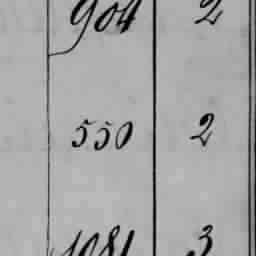 904 2
550 2
1081 3